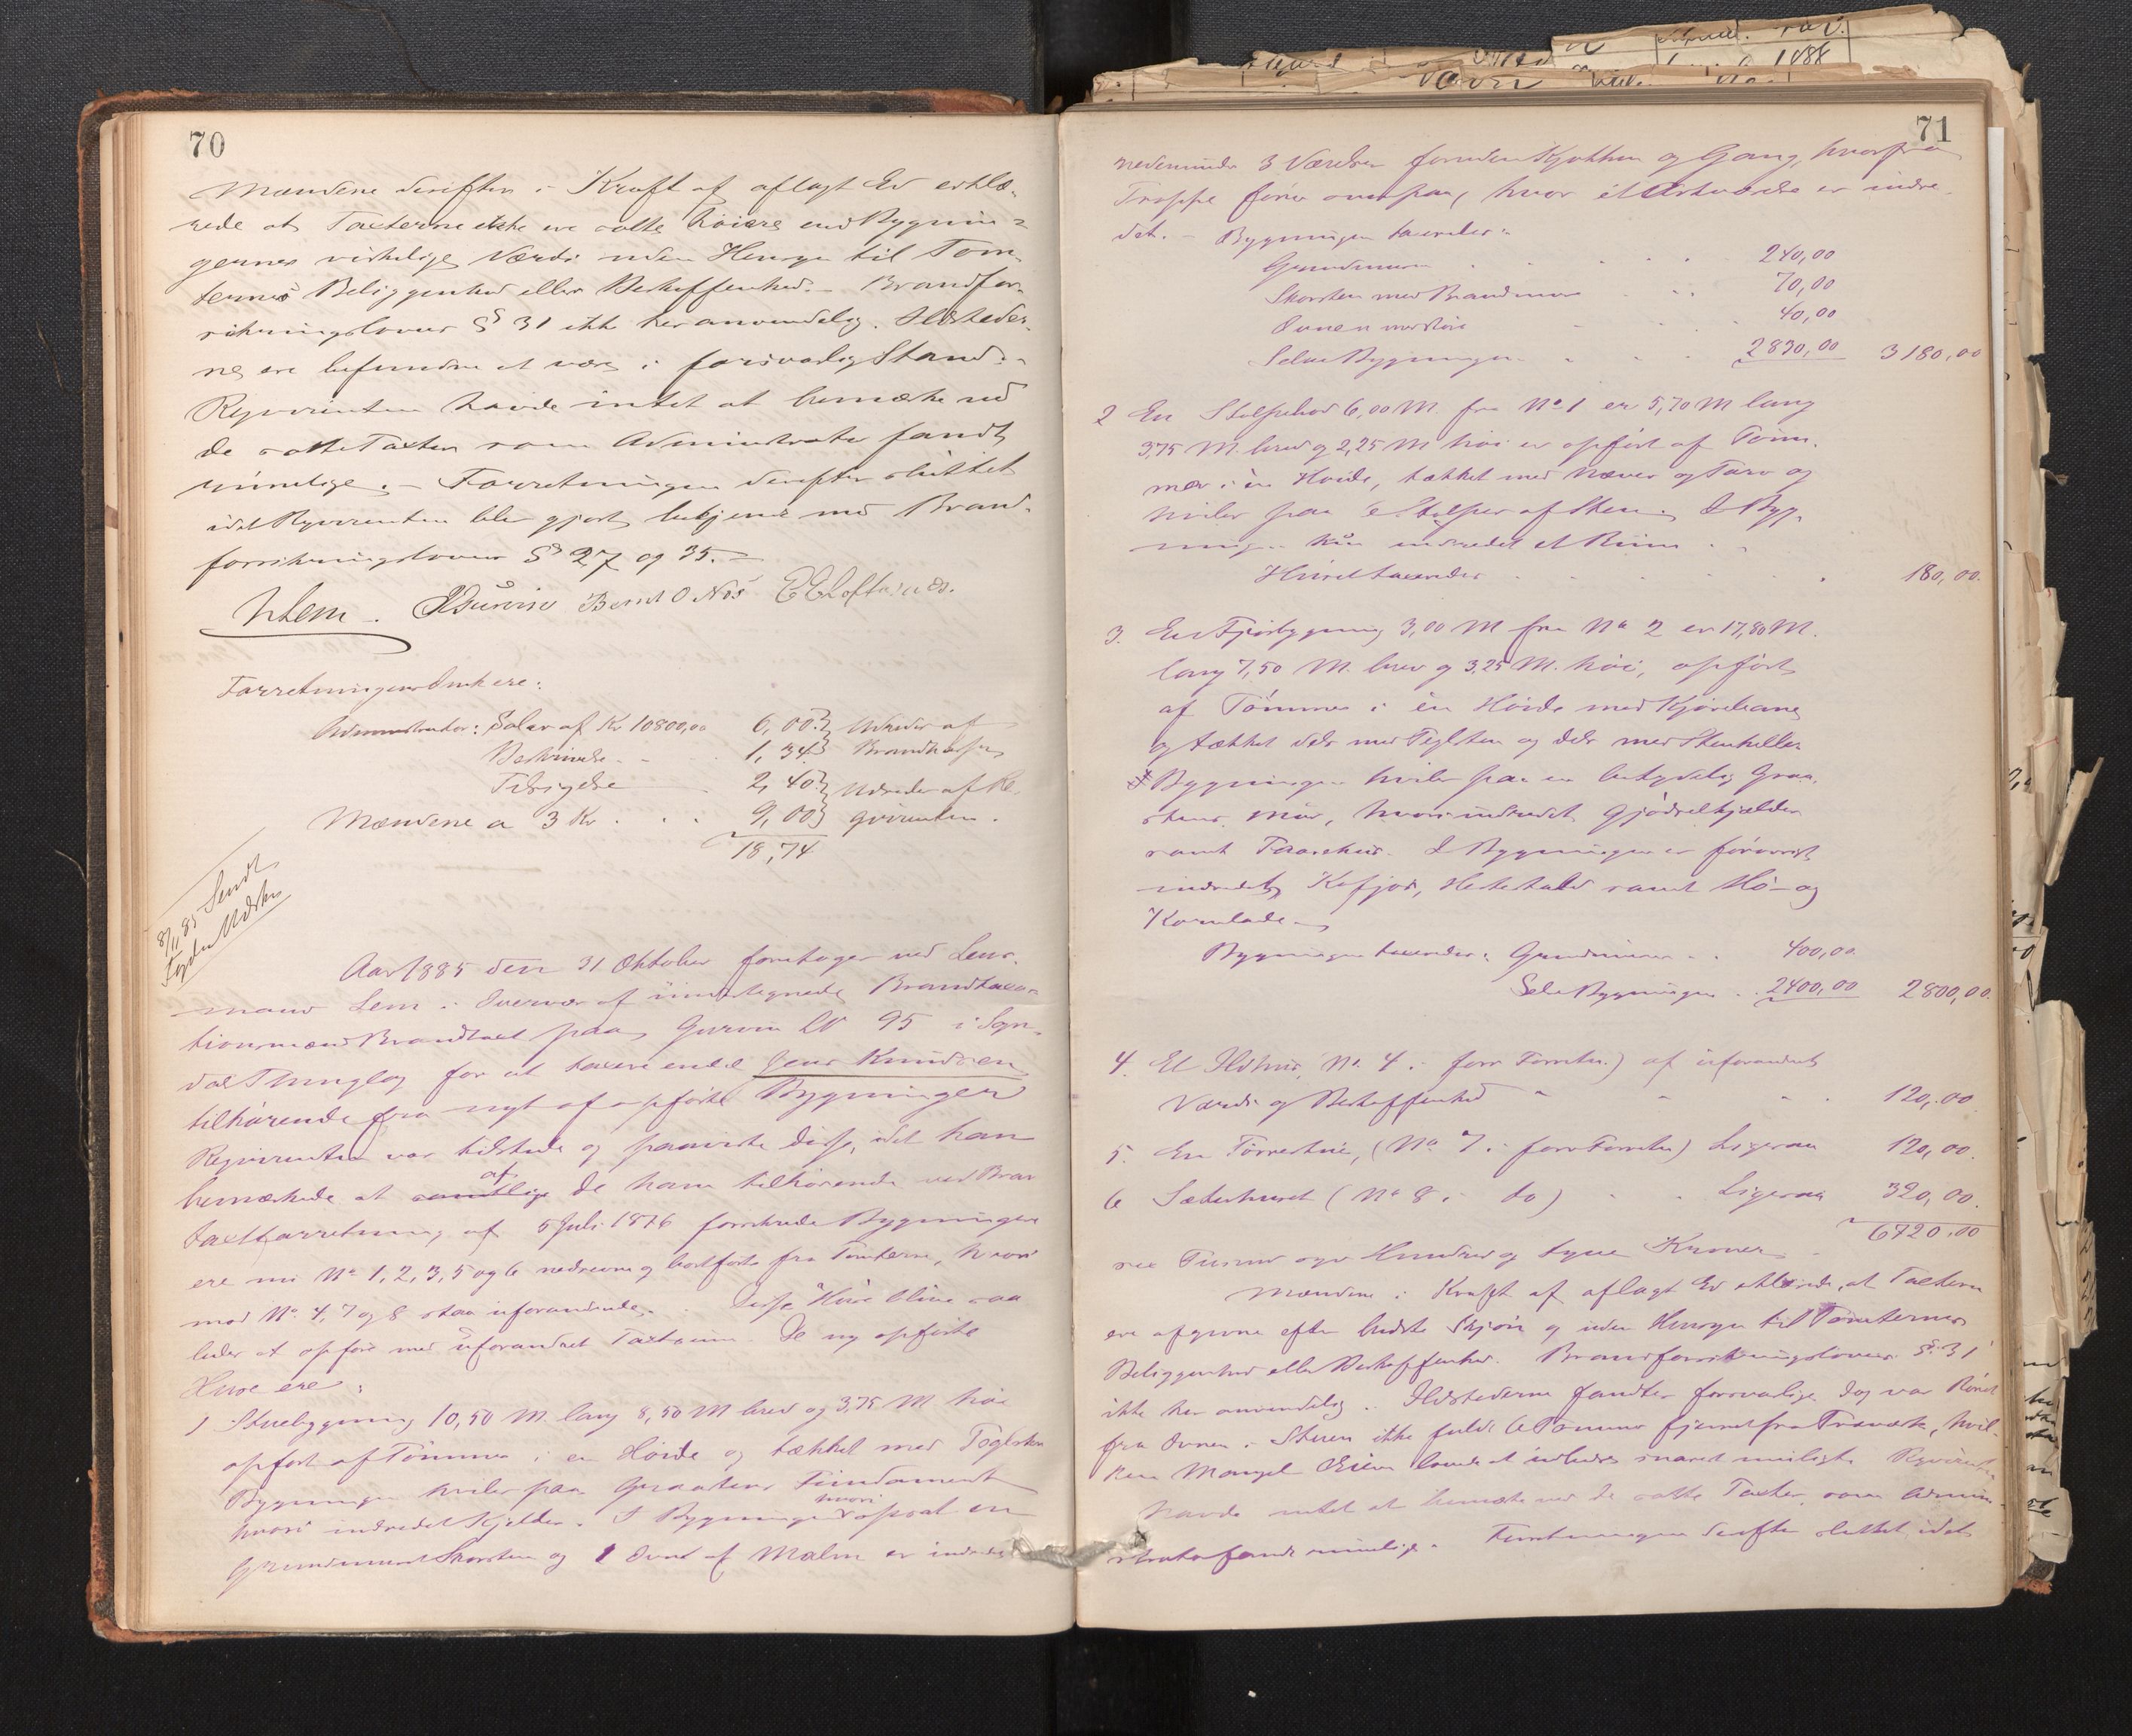 70
Mændene derefter i Kraft af aflagt Ed erklæ-
rede at Taxterne ikke ere satte høiere end Bygnin-
gernes virkelige Værdi uden Hensyn til Tom-
ternes Beliggenhed eller Beskaffenhed. – Brandfor-
sikringslovens § 31 ikke her anvendelig. Ildsteder-
ne ere befundne at være i forsvarlig Stand. –
Rqvirenten havde intet at bemærke ved
de satte Taxter som Administrator fandt
rimelige. – Forretningen derefter sluttet
idet Rqvirenten blev gjort bekjendt med Brand-
forsikringslovens §§ 27 og 35. –
Lem. Bernt O Nös E E Loftesnæs.
Forretningens Omk ere:
Administrator: Salær af Kr 10800,00 6,00 } Udredes af
Beskrivelse 1,34 } Brandkassen
Tilsigelse 2,40 } Udredes af Re-
Mændene a 3 Kr . . . 9,00 } qvirenten.
18,74
8/11 85 Sendt
Fogden Udskr
Aar 1885 den 31 Oktober foretages ved Lens-
mand Lem i Overvær af undertegnede Brandtaxa-
tionsmænd Brandtaxt paa Gurvin LN 95 i Sogn-
dal Thinglag for at taxere endel Jens Knudsen
tilhørende fra nyt af opførte Bygninger
Rqvirenten var tilstede og paaviste disse, idet han
bemærkede at af samtlige de ham tilhørende ved Bran
taxtforretning af 5 Juli 1876 forsikrede Bygninger
ere nu No 1, 2, 3, 5 og 6 nedrevne og bortførte fra Tomterne, hvori
mod No 4, 7 og 8 staa uforandrede. Disse Huse blive saa
ledes at opføre med uforandret Taxtsum. De ny opførte
Huse ere:
1 Stuebygning 10,50 M. lang 8,50 M bred og 3,75 M. høi
opført af Tømmer i en Høide og tækket med Teglsten
Bygningen hviler paa Graastens Fundament
hvori indredet Kjelder. I Bygningen hvori opsat en
grundmuret Skorsten og 1 Ovn af Malm er indredet
71
nedenunder 3 Værelser foruden Kjøkken og Gang, hvorfra
Trappe fører ovenpaa, hvor et Værelse er indre-
det. – Bygningen taxeredes:
Grundmuren . . . . 240,00
Skorsten med Brandmur . . . 70,00
Ovnen med Rør 40,00
Selve Bygningen . . . 2830,00 3180,00
2 En Stolpebod 6,00 M. fra No 1 er 5,70 M lang
3,75 M. bred og 2,25 M høi er opført af Tøm-
mer i én Høide, tækket med Næver og Tørv og
hviler paa 6 Stolper af Sten. I Byg-
ningen kun indredet et Rum.
Huset taxeredes . . . . . 180,00.
3. En Fjøsbygning 3,00 M fra No 2 er 17,80 M.
lang 7,50 M. bred og 3,25 M. høi, opført
af Tømmer i én Høide med Kjørebane
og tækket dels med Teglsten og dels med Stenheller
Bygningen hviler paa en betydelig Graa-
stens mur, hvori indredet Gjødselkjælder
samt Faarehus. I Bygningen er forøvrigt
indredet Kofjøs, Hestestald samt Hø- og
Kornlade.
Bygningen taxeredes: Grundmuren . . 400,00
Selve Bygningen . 2400,00 2800,00.
4. Et Ildhus, (No. 4 i forr Forretn.) af uforandret
Værdi og Beskaffenhed 120,00
5. En Tørrestue, (No 7 i forr Forretn) Ligesaa 120,00.
6 Sæterhuset (No 8 i do) . . Ligesaa 320,00.
6720,00
sex Tusind syv Hundred og tyve Kroner
Mændene i Kraft af aflagt Ed erklærede, at Taxterne
ere afgivne efter bedste Skjøn og uden Hensyn til Tomternes
Beliggenhed eller Beskaffenhed. Brandforsikringslovens § 31
ikke her anvendelig. Ildstederne fandtes forsvarlige. Dog var Røret
fra Ovnen i Stuen ikke fuldt 6 Tommer fjernet fra Træværk, hvil-
ken Mangel Eieren lovede at udbedre snarest muligt. Rqvirenten
havde intet at bemærke ved de satte Taxter, som Admini-
strator fandt rimelige. Forretningen derefter sluttet, idet